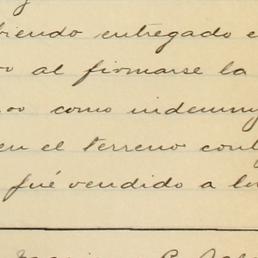 biendo entregado e
al firmarse la
como indemny
en el terreno cont
fué vendido a lo